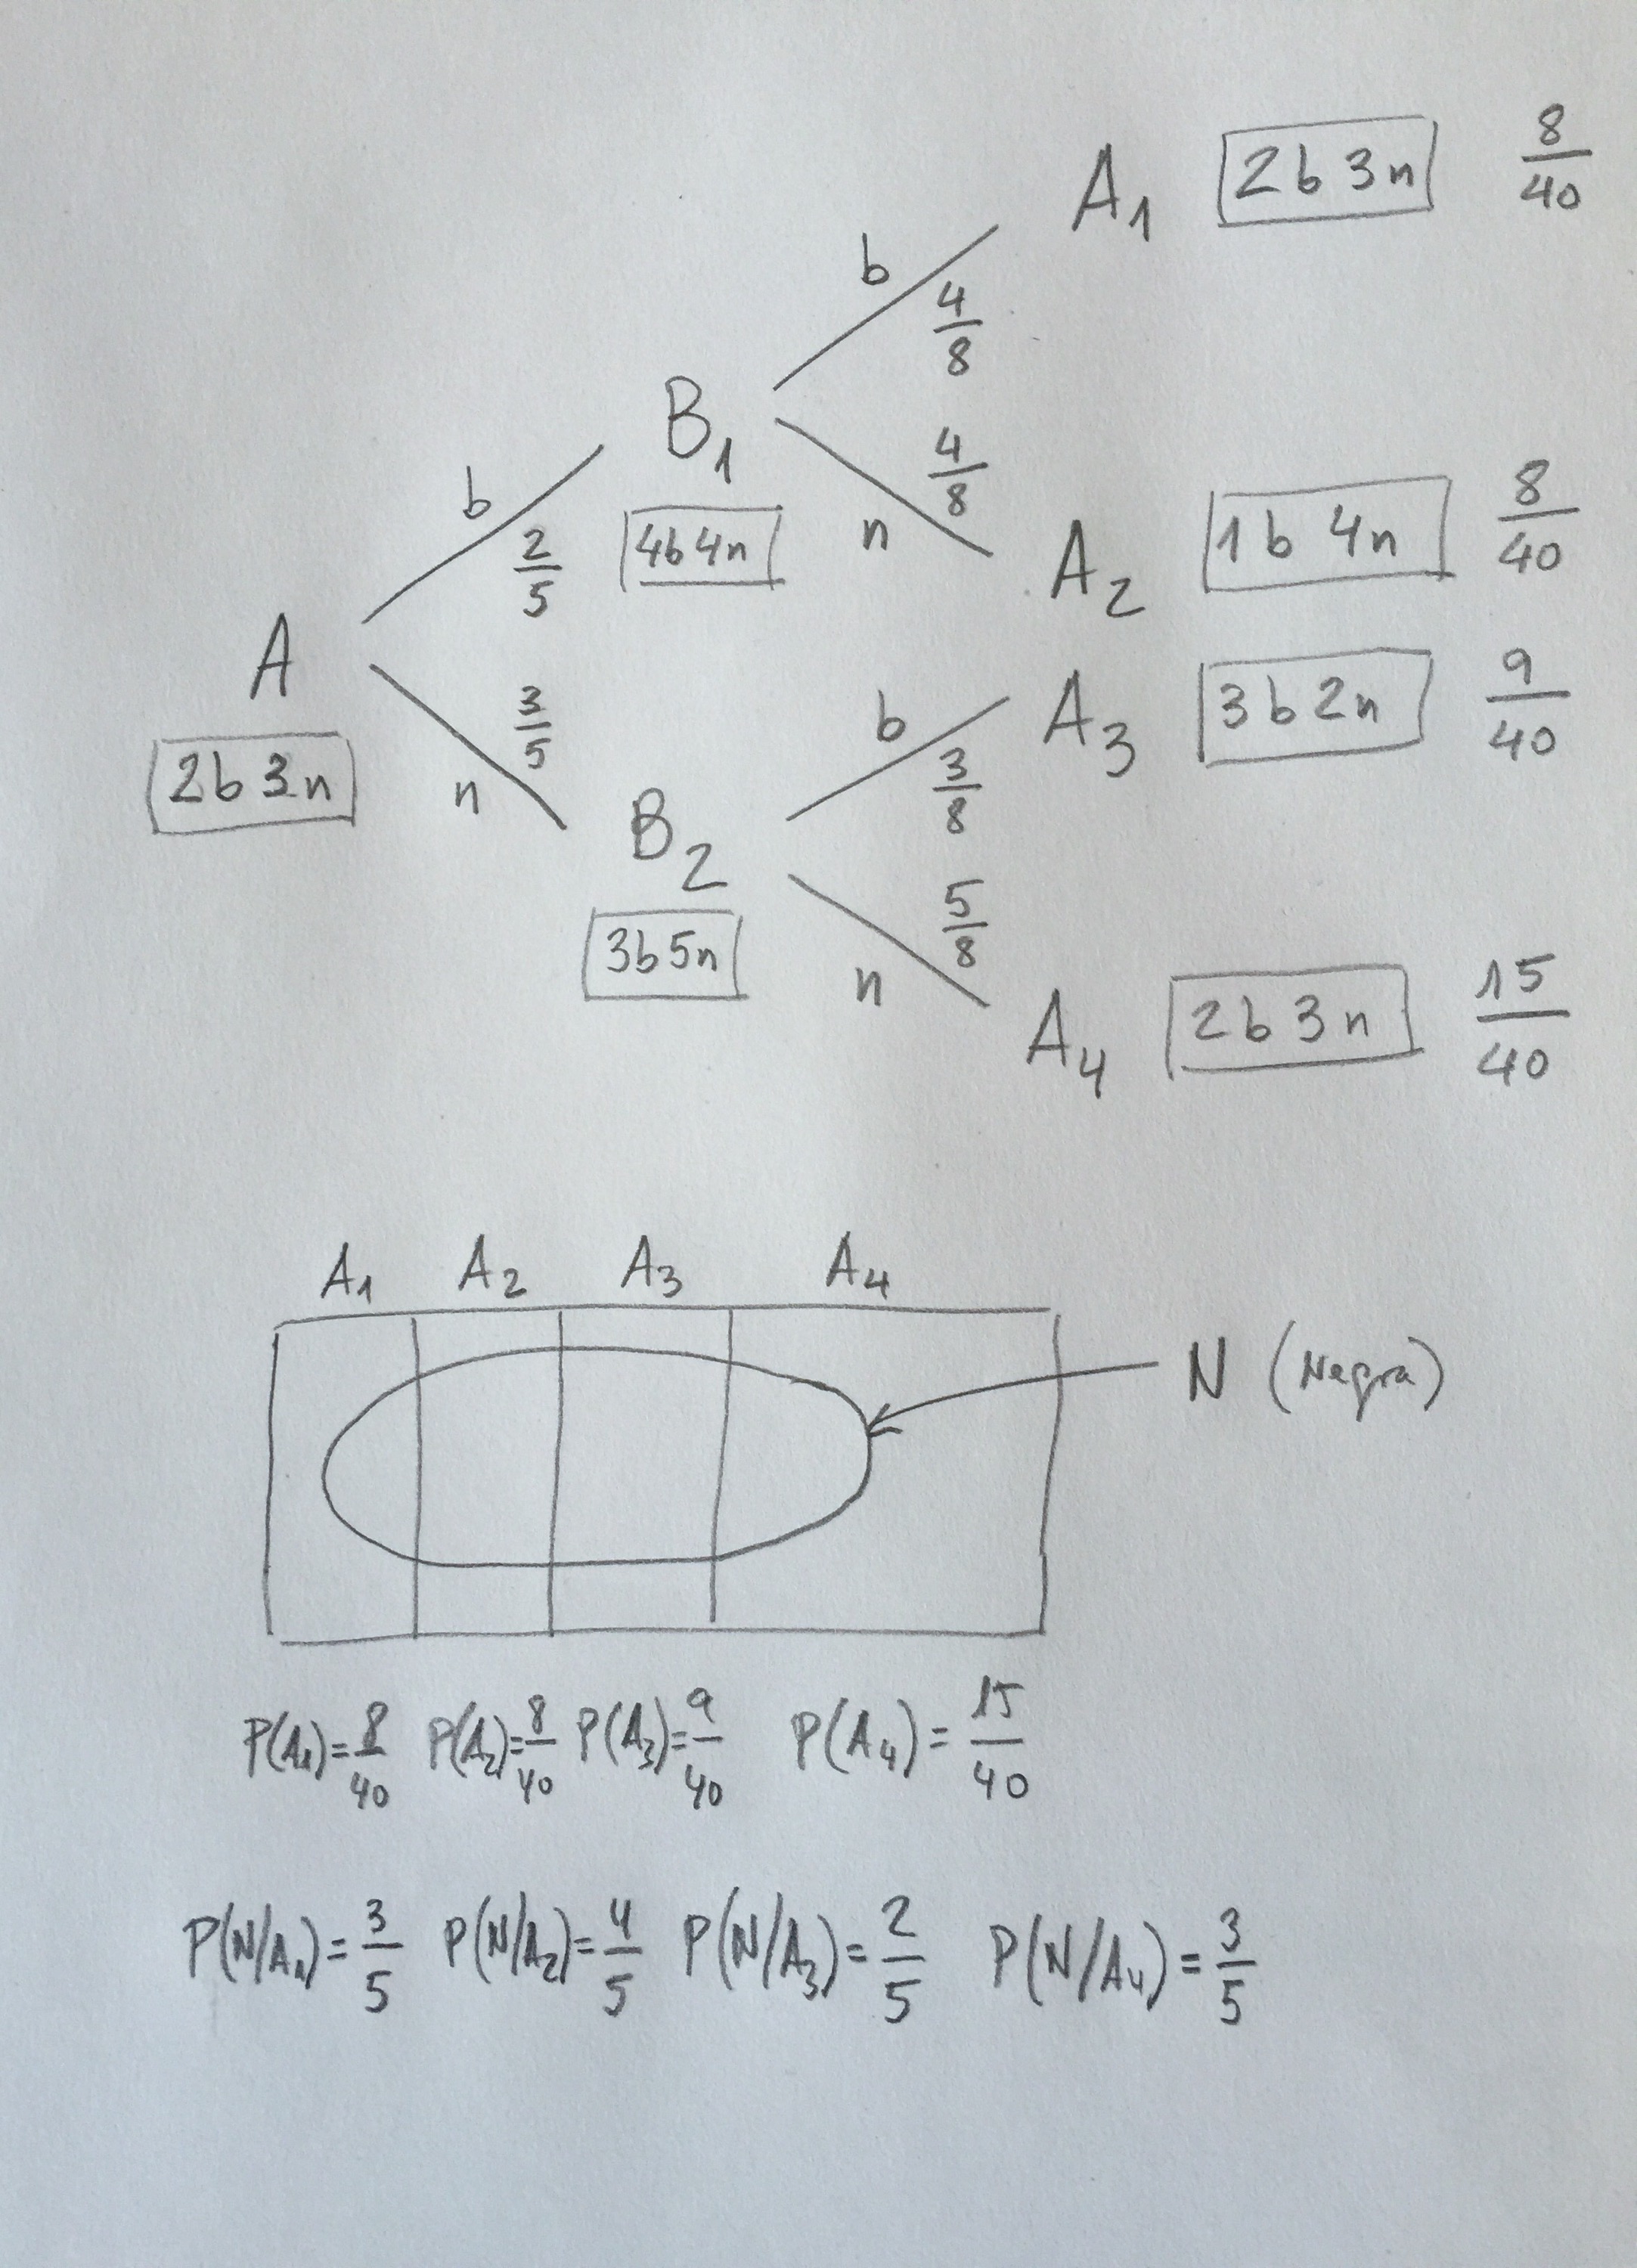 A₁ 2b 3n 8/40
b 4/8
B₁ 4b4n
n 4/8
A₂ 1b 4n 8/40
b 2/5
A 2b 3n
n 3/5
b 3/8
A₃ 3b 2n 9/40
B₂ 3b5n
n 5/8
A₄ 2b 3n 15/40
A₁ A₂ A₃ A₄
N (Negra)
P(A₁)=8/40 P(A₂)=8/40 P(A₃)=9/40 P(A₄)=15/40
P(N/A₁)=3/5 P(N/A₂)=4/5 P(N/A₃)=2/5 P(N/A₄)=3/5